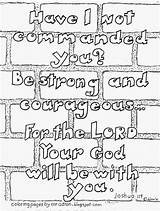 Have I not
commanded
you?
Be strong and
courageous...
For the LORD
Your God
will be with
you.
Joshua 1:9
coloring pages by mr adron. blogspot.com